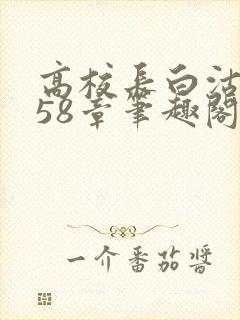 高校长白沽
58章笔趣阁
一介番茄酱